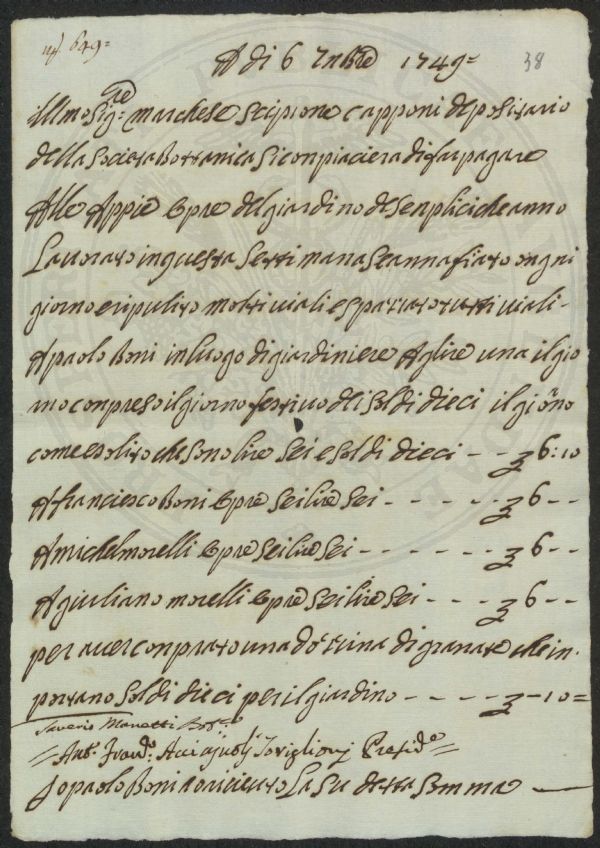 nº 649=
A di 6 7mbre 1749=
38
Illmo Sig.re marchese scipione capponi depositario
della società Bottanica si conpiacierà di far pagare
Alle Appie opre del giardino de senplici che anno
Lavorato in questa settimana e anna fiato ongni
giorno e ripulito molti viali e spazzato tutti viali -
A paolo Boni in luogo di giardiniere A lire una il gio
rno conpreso il giorno festivo di soldi dieci il giorno
come solito che sono lire sei e soldi dieci - - 6:10
A franciesco Boni opre sei lire sei - - - - - - 6 - -
A michel morelli opre sei lire sei - - - - - - - 6 - -
A giuliano morelli opre sei lire sei - - - - 6 - -
per aver conprato una dottina di granate che in-
portano soldi dieci per il giardino - - - - - - 10 =
Saverio Manetti
= Ant. Franc. Acciajuoli Toriglioni Presid.e =
Io paolo Boni ò riciieuto La su detta Somma —